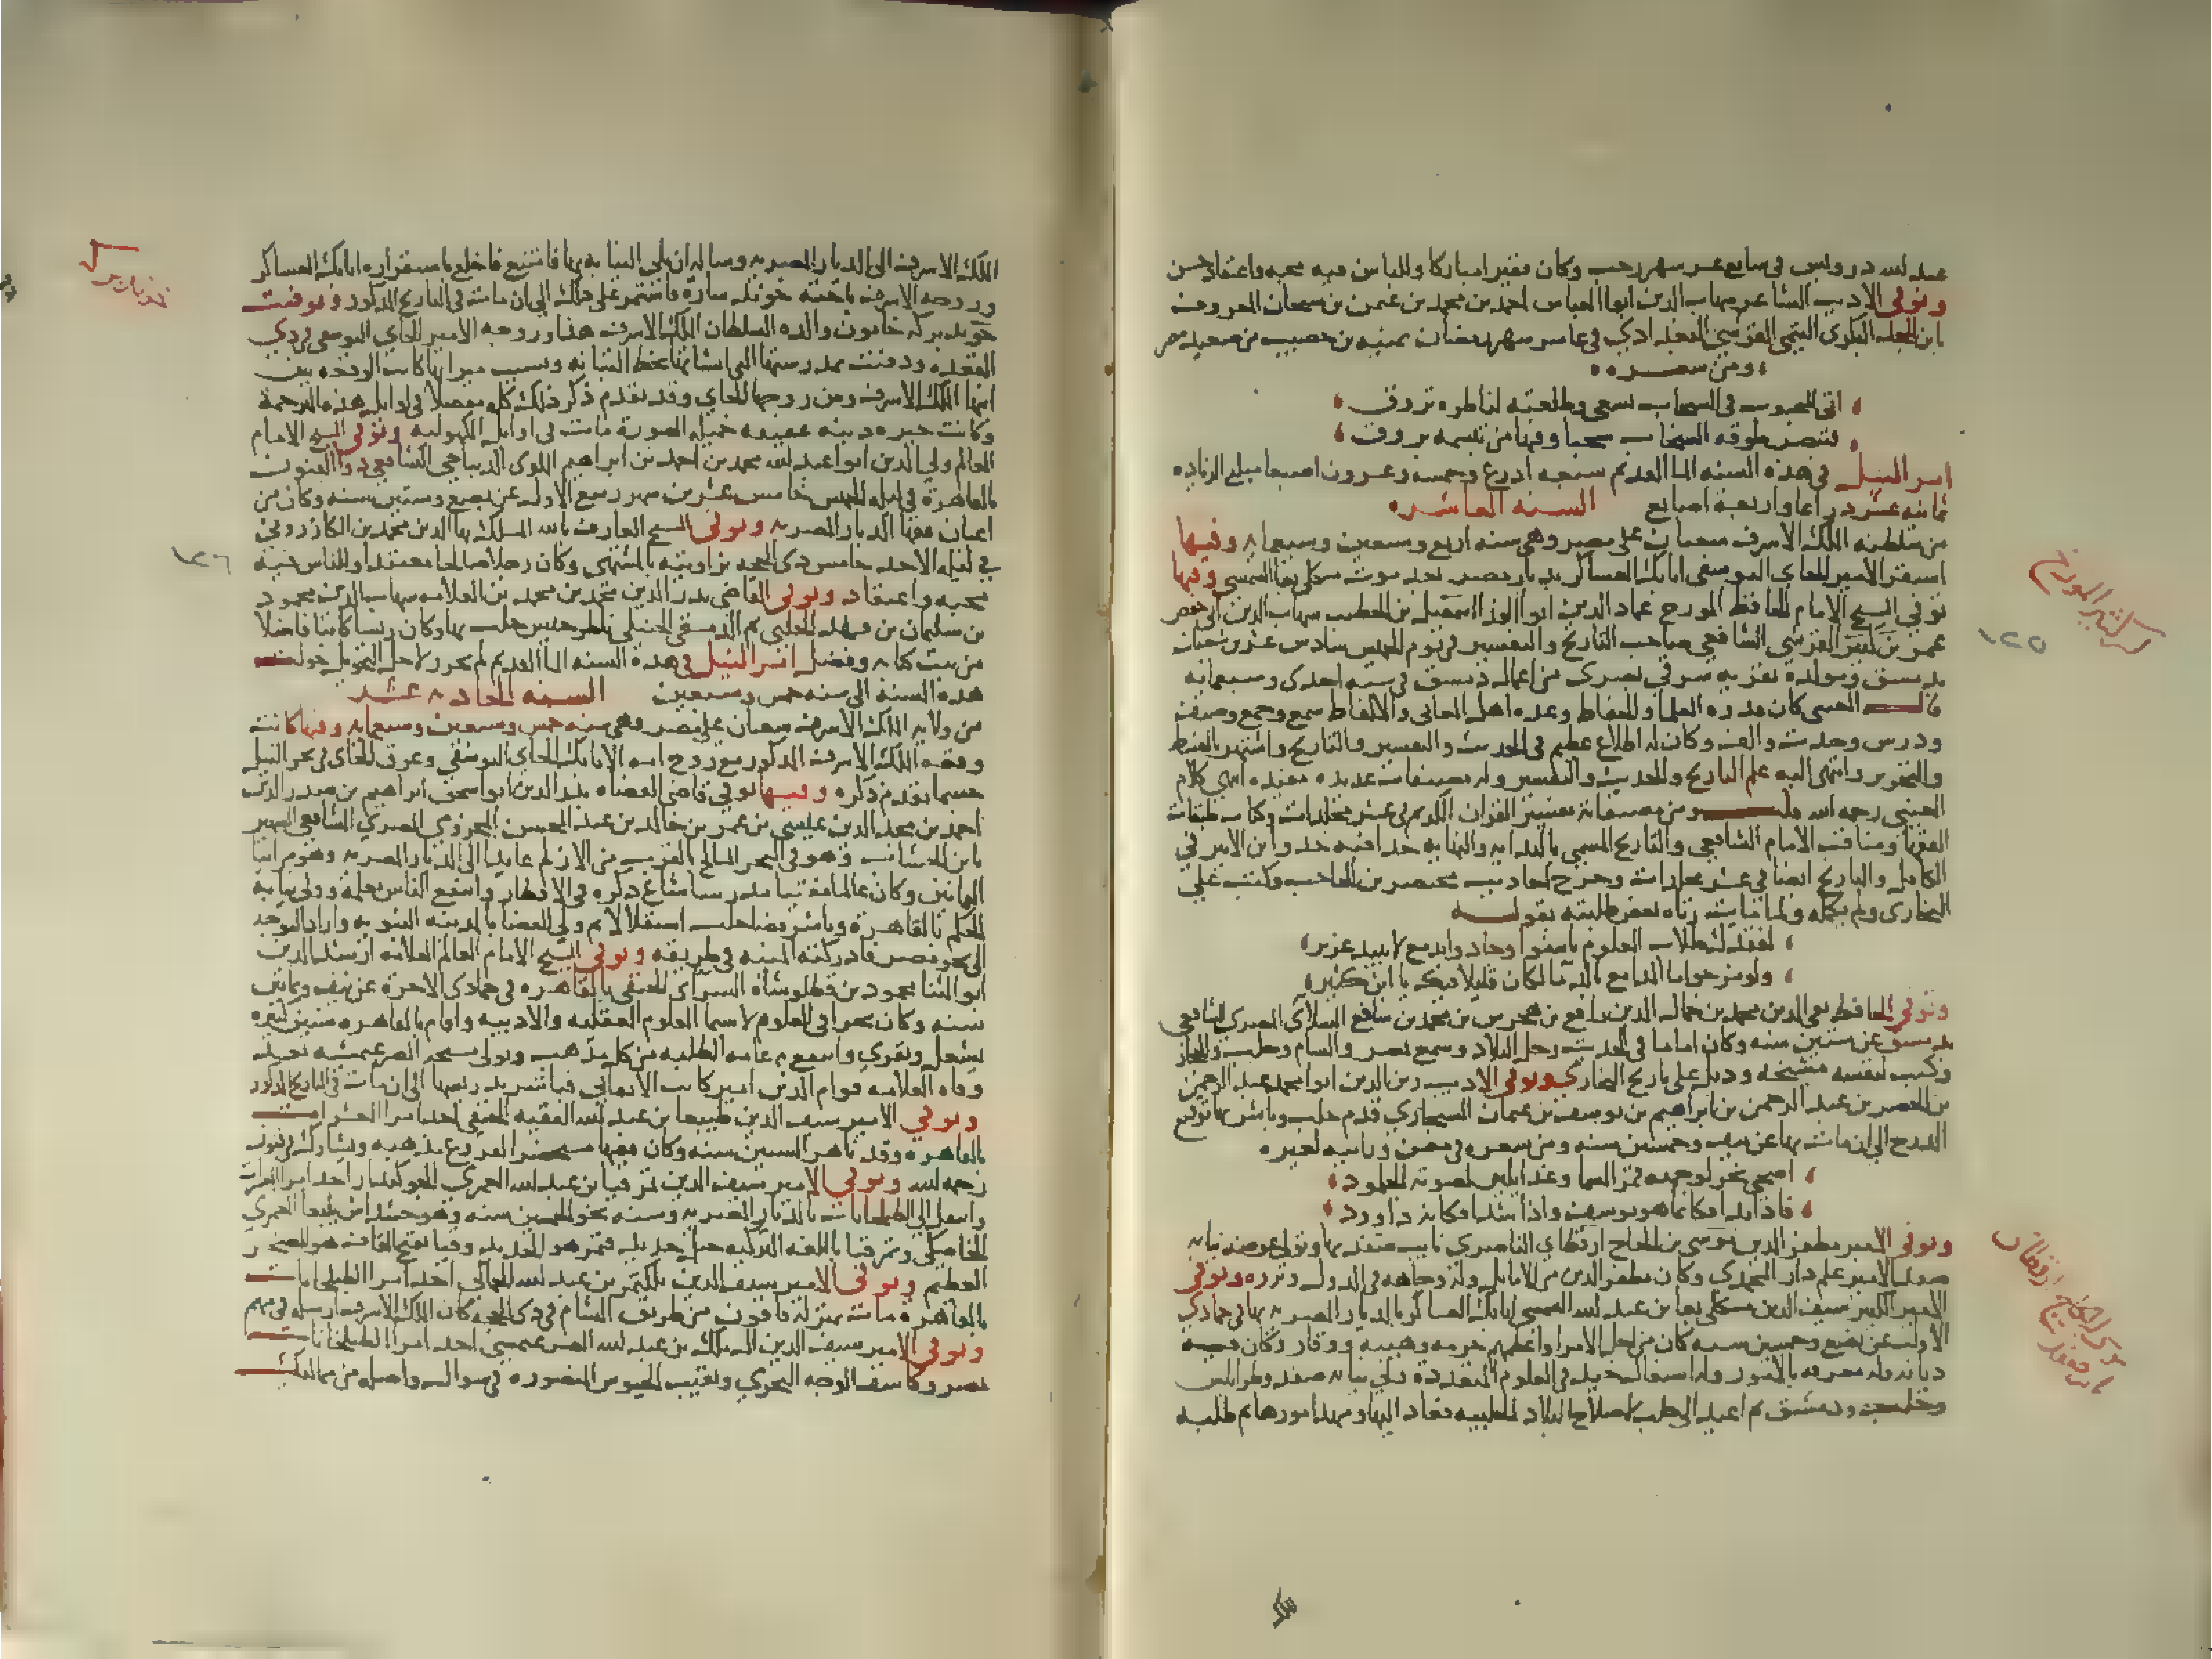 عبد الله درويش في سابع عشر شهر رجب وكان فقيرا مباركا وللناس فيه محبه واعتقاد حسن
وتوفي الاديب الشاعر شهاب الدين ابو العباس احمد بن محمد بن عثمن بن شيحان المعروف
بابن المجد البكري التيمي القرشي البغدادي في عاشر شهر رمضان بمنيه بن خصيب من صعيد مصر
ومن شعره
في السحاب يسعى وطلعته لناظره تروق
طوقه السحاب سحبا وفيها من تبسمه بروق
امر النيل في هذه السنه الما القديم سبعه اذرع وخمسه وعشرون اصبعا مبلغ الزياده
ثمانيه عشر ذراعا واربعة اصابع السنه العاشره
من سلطنه الملك الاشرف شعبان على مصر وهي سنه اربع وسبعين وسبعمايه وفيها
استقر الامير الجاي اليوسفي اتابك العساكر بديار مصر بعد موت منكلي بغا الشمسي وفيها
توفي الشيخ الامام الحافظ المورخ عماد الدين ابو الفدا اسمعيل بن الخطيب شهاب الدين ابي حفص
عمر بن كثير القرشي الشافعي صاحب التاريخ والتفسير في يوم الخميس سادس عشرين شعبان
بدمشق ومولده بقريه شرقي بصرى من اعمال دمشق في سنه احدى وسبعمايه
قال العيني كان قدوه العلما والحفاظ وعمده اهل المعاني والالفاظ سمع وجمع وصنف
ودرس وحدث والف وكان له اطلاع عظيم في الحديث والتفسير والتاريخ واشتهر بالضبط
والتحرير وانتهى اليه علم التاريخ والحديث والتفسير وله مصنفات عديده مفيده انتهى كلام
العيني رحمه الله قلت ومن مصنفاته تفسير القران الكريم في عشر مجلدات وكتاب طبقات
الفقها ومناقب الامام الشافعي والتاريخ المسمى بالبدايه والنهايه حذا فيه حذو ابن الاثير في
الكامل والتاريخ ايضا في عشر مجلدات وخرج احاديث مختصر بن الحاجب وكتب على
البخاري ولم يكمله ولما مات رثاه بعض طلبته بقوله
لفقدك طلاب العلوم تاسفوا وجادوا بدمع لا يبيد غزير
ولو مزجوا ما المدامع بالدما لكان قليلا فيك يا ابن كثير
وتوفي الحافظ تقي الدين محمد بن جمال الدين رافع بن هجرس بن محمد بن شافع السلامي المصري الشافعي
بدمشق عن سنين سنه وكان اماما في الحديث رحل البلاد وسمع بمصر والشام وحلب والحجاز
وكتب لنفسه مشيخه وذيل على تاريخ البخاري وتوفي الاديب زين الدين ابو محمد عبد الرحمن
بن الخضر بن عبد الرحمن بن ابراهيم بن يوسف بن عثمان السنجاري قدم حلب وباشر بها توقيع
الدرج الى ان مات بها عن نيف وخمسين سنه ومن شعره في مغن وفيه لغيره
اضحى يخر لوجهه قمر السما وغدا يلين لصوته الجلمود
فاذا بدا فكانما هو يوسف واذا شدا فكانه داود
وتوفي الامير مظفر الدين موسى بن الحاج ارقطاي الناصري نايب صفد بها وتولى عوضه نيابه
صفد الامير علم دار المحمدي وكان مظفر الدين من الاماثل وله وجاهه في الدول وثروه وتوفي
الامير الكبير سيف الدين منكلي بغا بن عبد الله الشمسي اتابك العساكر بالديار المصريه بها في جمادى
الاولى عن بضع وخمسين سنه كان من اجل الامرا واعظمهم حرمه وهيبه ووقار وكان فيه
ديانه وله معرفه بالامور وله اشتغال جيد في العلوم المتعدده ولي نيابه صفد وطرابلس
وحلب ودمشق ثم اعيد الى حلب لاصلاح البلاد الحلبيه فعاد اليها ومهد امورها ثم طلبه
ابن كثير المورخ
١٢٥
الملك الاشرف الى الديار المصريه وساله ان يلي النيابه بها فامتنع فاخلع باستقراره اتابك العساكر
وزوجه الاشرف باخته خوند ساره فاستمر على ذلك الى ان مات في التاريخ المذكور وتوفيت
خوند بركه خاتون والده السلطان الملك الاشرف هذا وزوجه الامير الجاي اليوسفي في ذي
القعده ودفنت بمدرستها التي انشاتها بخط التبانه وبسبب ميراثها كانت الوقعه بين
ابنها الملك الاشرف وبين زوجها الجاي وقد تقدم ذكر ذلك كله مفصلا في اوايل هذه الترجمة
وكانت خيره دينه عفيفه جميله الصورة ماتت في اوايل الكهوليه وتوفي الشيخ الامام
العالم ولي الدين ابو عبد الله محمد بن احمد بن ابراهيم الملوي الديباجي الشافعي ذو الفنون
بالقاهرة في ليله الخميس خامس عشرين شهر ربيع الاول عن بضع وستين سنه وكان من
اعيان فقها الديار المصريه وتوفي الشيخ العارف بالله المسلك بها الدين محمد بن الكازروني
في ليله الاحد خامس ذي الحجه بزاويته بالمشتهى وكان رجلا صالحا معتقدا وللناس فيه
محبه واعتقاد وتوفي القاضي بدر الدين محمد بن محمد بن العلامه شهاب الدين محمود
بن سليمان بن فهد الحلبي ثم الدمشقي الحنبلي ناظر جيش حلب بها وكان رييسا كاتبا فاضلا
من بيت كتابه وفضل امر النيل في هذه السنه الما القديم لم يحرر لاجل التحويل حولت
هذه السنة الى سنه خمس وسبعين السنه الحاديه عشر
من ولايه الملك الاشرف شعبان على مصر وهي سنه خمس وسبعين وسبعمايه وفيها كانت
وقعه الملك الاشرف المذكور مع زوج امه الاتابك الجاي اليوسفي وغرق الجاي في بحر النيل
حسبما تقدم ذكره وفيها توفي قاضي القضاه بدر الدين ابو اسحق ابراهيم بن صدر الدين
احمد بن مجد الدين عيسى بن عمر بن خالد بن عبد المحسن المخزومي المصري الشافعي الشهير
بابن الخشاب وهو في البحر المالح بالقرب من الازلم عايدا الى الديار المصريه وهو من ابنا
الثمانين وكان عالما مفتيا مدرسا شاع ذكره في الاقطار وانتفع الناس بعلمه وولي نيابه
الحكم بالقاهرة وباشر قضا حلب استقلالا ثم ولي القضا بالمدينه النبويه واراد التوجه
الى نحو مصر فادركته المنيه في طريقه وتوفي الشيخ الامام العالم العلامه ارشد الدين
ابو الثنا محمود بن قطلوشاه السراي الحنفي بالقاهره في جمادى الاخرة عن نيف وثمانين
سنه وكان بحرا في العلوم لاسيما العلوم العقليه والادبيه واقام بالقاهره سنين كثيره
يشغل ويقري وانتفع به عامه الطلبه من كل مذهب وتولى مشيخه الصرغتمشيه بعد
وفاه العلامه قوام الدين امير كاتب الاتقاني فباشر تدريسها الى ان مات في التاريخ المذكور
وتوفي الامير سيف الدين طيبغا بن عبد الله الفقيه الحنفي احد امرا العشرات
بالقاهره وقد ناهز الستين سنه وكان فقيها مستحضرا لفروع مذهبه ويشارك في فنون
رحمه الله وتوفي الامير سيف الدين تمر قيا بن عبد الله العمري الجوكندار احد امرا
الطبلخانات بالديار المصريه وسنه نحو الخمسين سنه وهو خشداش يلبغا العمري
الخاصكي وتمر قيا باللغه التركيه جبل حديد فتمر هو الحديد وقيا بفتح القاف هو الصخر
العظيم وتوفي الامير سيف الدين بلكتمر بن عبد الله الجمالي احد امرا الطبلخانات
بالقاهره مات بمنزله قاقون من طريق الشام في ذي الحجه كان الملك الاشرف ارسله في مهم
وتوفي الامير سيف الدين ال ملك بن عبد الله الصرغتمشي احد امرا الطبلخانات
بمصر وكاشف الوجه البحري ونقيب الجيوش المنصوره في شوال واصله من مماليك
خوند بركه
١٢٦